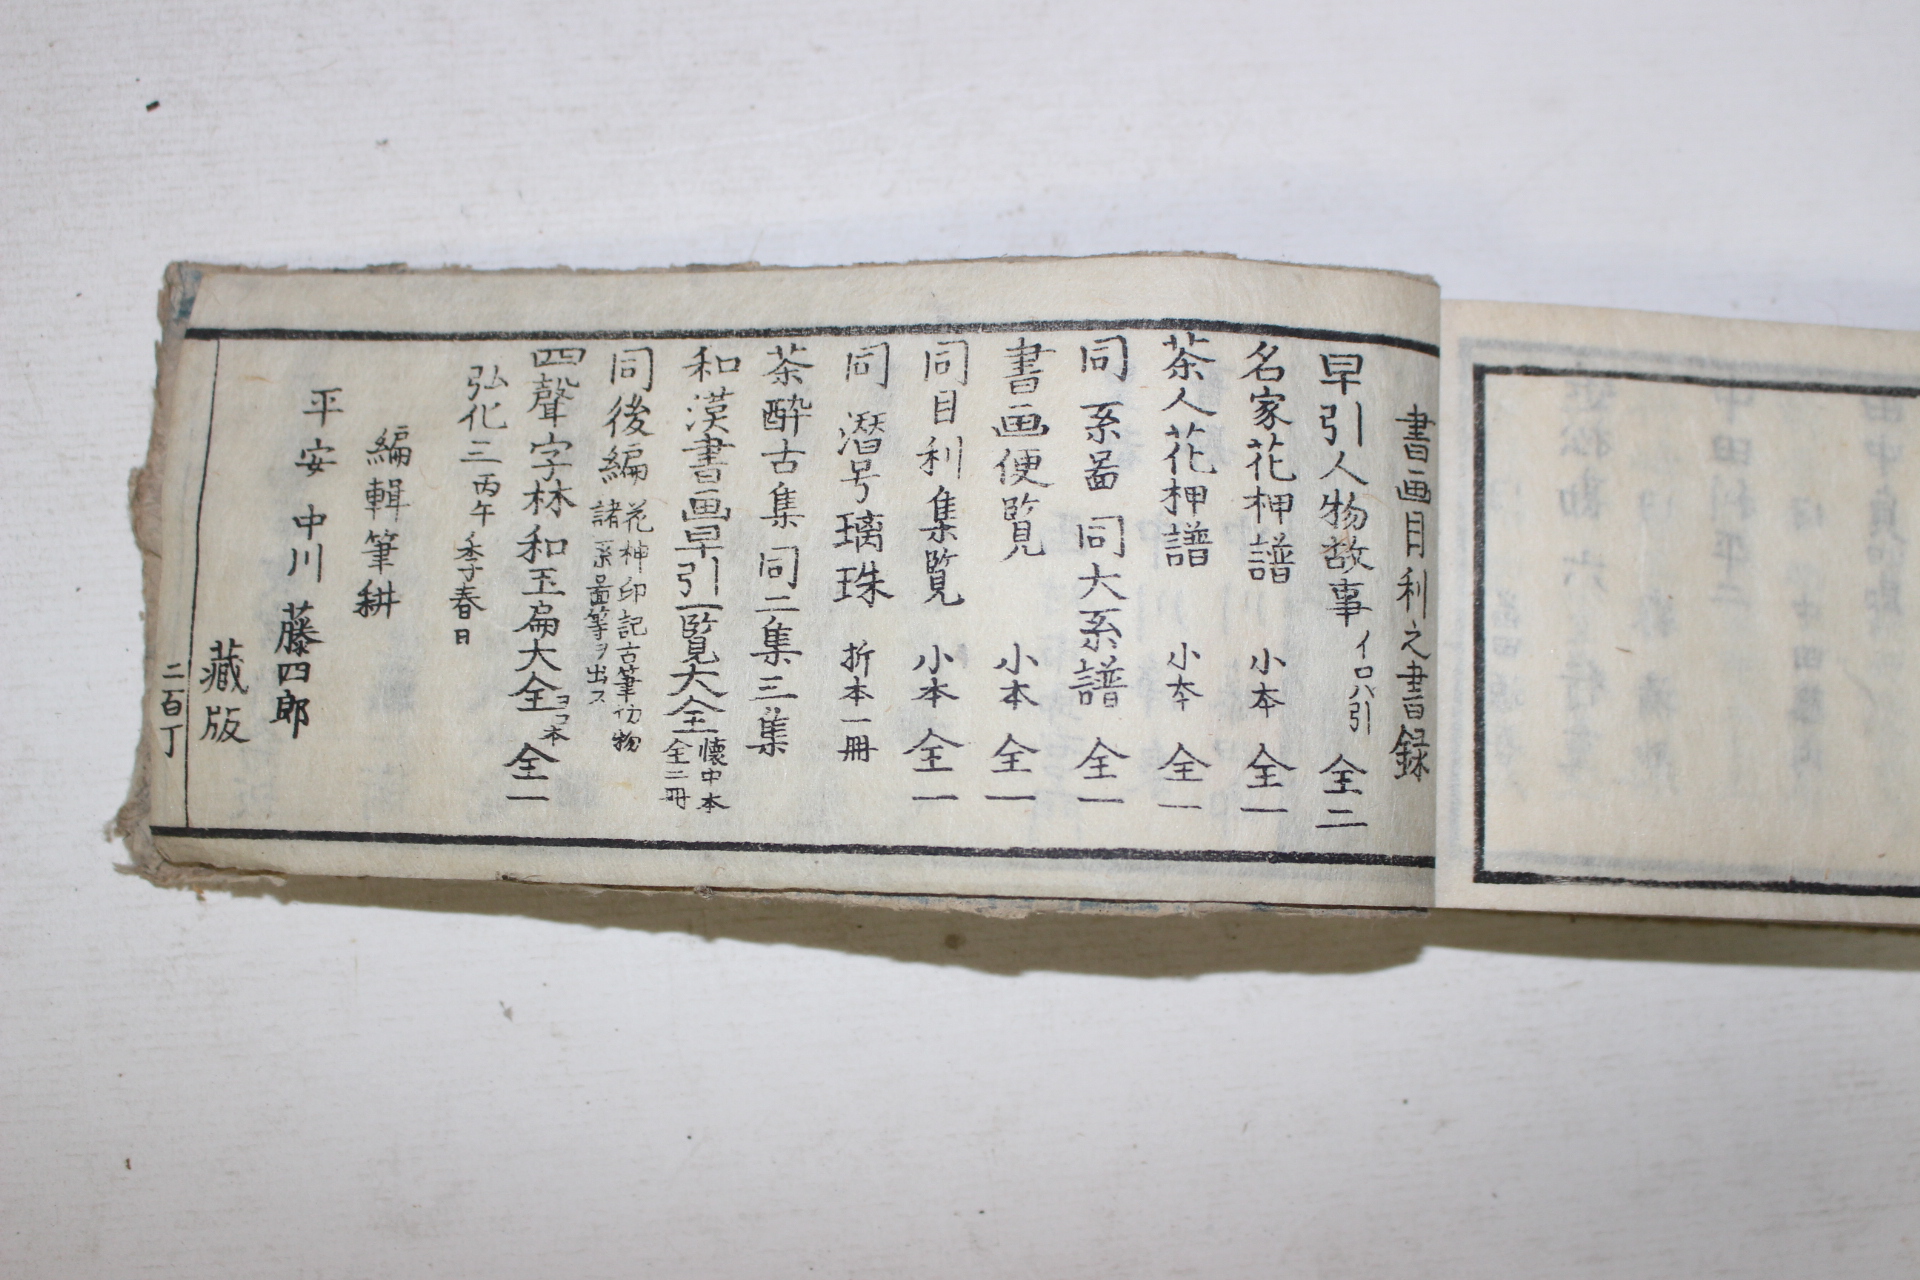 書画目利之書録
早引人物故事 イロハ引 全二
名家花押譜 小本 全一
茶人花押譜 小本 全一
同系図 同大系譜 全一
書画便覧 小本 全一
同目利集覧 小本 全一
同 潜号璃珠 折本一冊
茶酔古集 同二集 三集
和漢書画早引一覧大全 懐中本 全二冊
同後編 花押印記古筆仿物 諸系圖等ヲ出ス
四聲字林和玉扁大全 ヨコ本 全一
弘化三丙午季春日
編輯筆耕
平安 中川藤四郎
藏版
二百丁